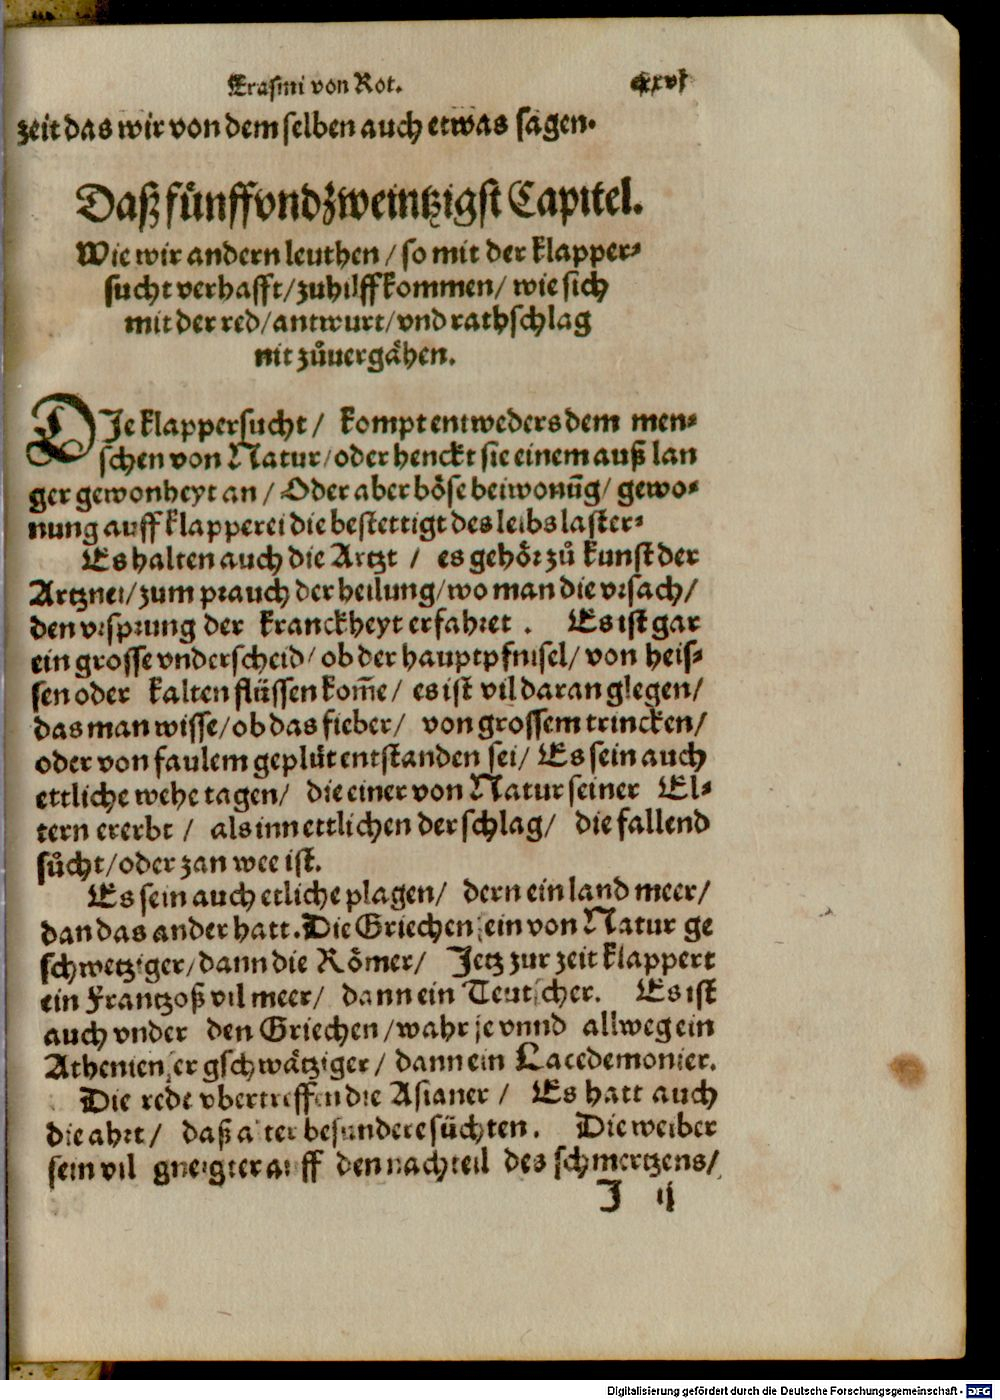 Erasmi von Rot. xxvj
zeit das wir von dem selben auch etwas sagen.
Daß fünffvndzweintzigst Capitel.
Wie wir andern leuthen / so mit der klapper⸗
sucht verhafft / zuhilff kommen / wie sich
mit der red / antwurt / vnd rathschlag
nit zůuergähen.
DIe klappersucht / kompt entweders dem men⸗
schen von Natur / oder henckt sie einem auß lan
ger gewonheyt an / Oder aber böse beiwonūg / gewo⸗
nung auff klapperei die bestettigt des leibs laster⸗
Es halten auch die Artzt / es gehört zů kunst der
Artznei / zum prauch der heilung / wo man die vrsach /
den vrsprung der kranckheyt erfahret . Es ist gar
ein grosse vnderscheid / ob der hauptpfnisel / von heis⸗
sen oder kalten flüssen kom̄e / es ist vil daran glegen /
das man wisse / ob das fieber / von grossem trincken /
oder von faulem geplüt entstanden sei / Es sein auch
ettliche wehe tagen / die einer von Natur seiner El⸗
tern ererbt / als inn ettlichen der schlag / die fallend
sůcht / oder zan wee ist.
Es sein auch etliche plagen / dern ein land meer /
dan das ander hatt. Die Griechen sein von Natur ge
schwetziger / dann die Römer / Jetz zur zeit klappert
ein Frantzoß vil meer / dann ein Teutscher. Es ist
auch vnder den Griechen / wahr je vnnd allweg ein
Atheniensser gschwätziger / dann ein Lacedemonier.
Die rede vbertreffen die Asianer / Es hatt auch
die ahrt / daß alter besundere süchten. Die weiber
sein vil gneigter auff den nachteil des schmertzens /
J ij
Digitalisierung gefördert durch die Deutsche Forschungsgemeinschaft - DFG